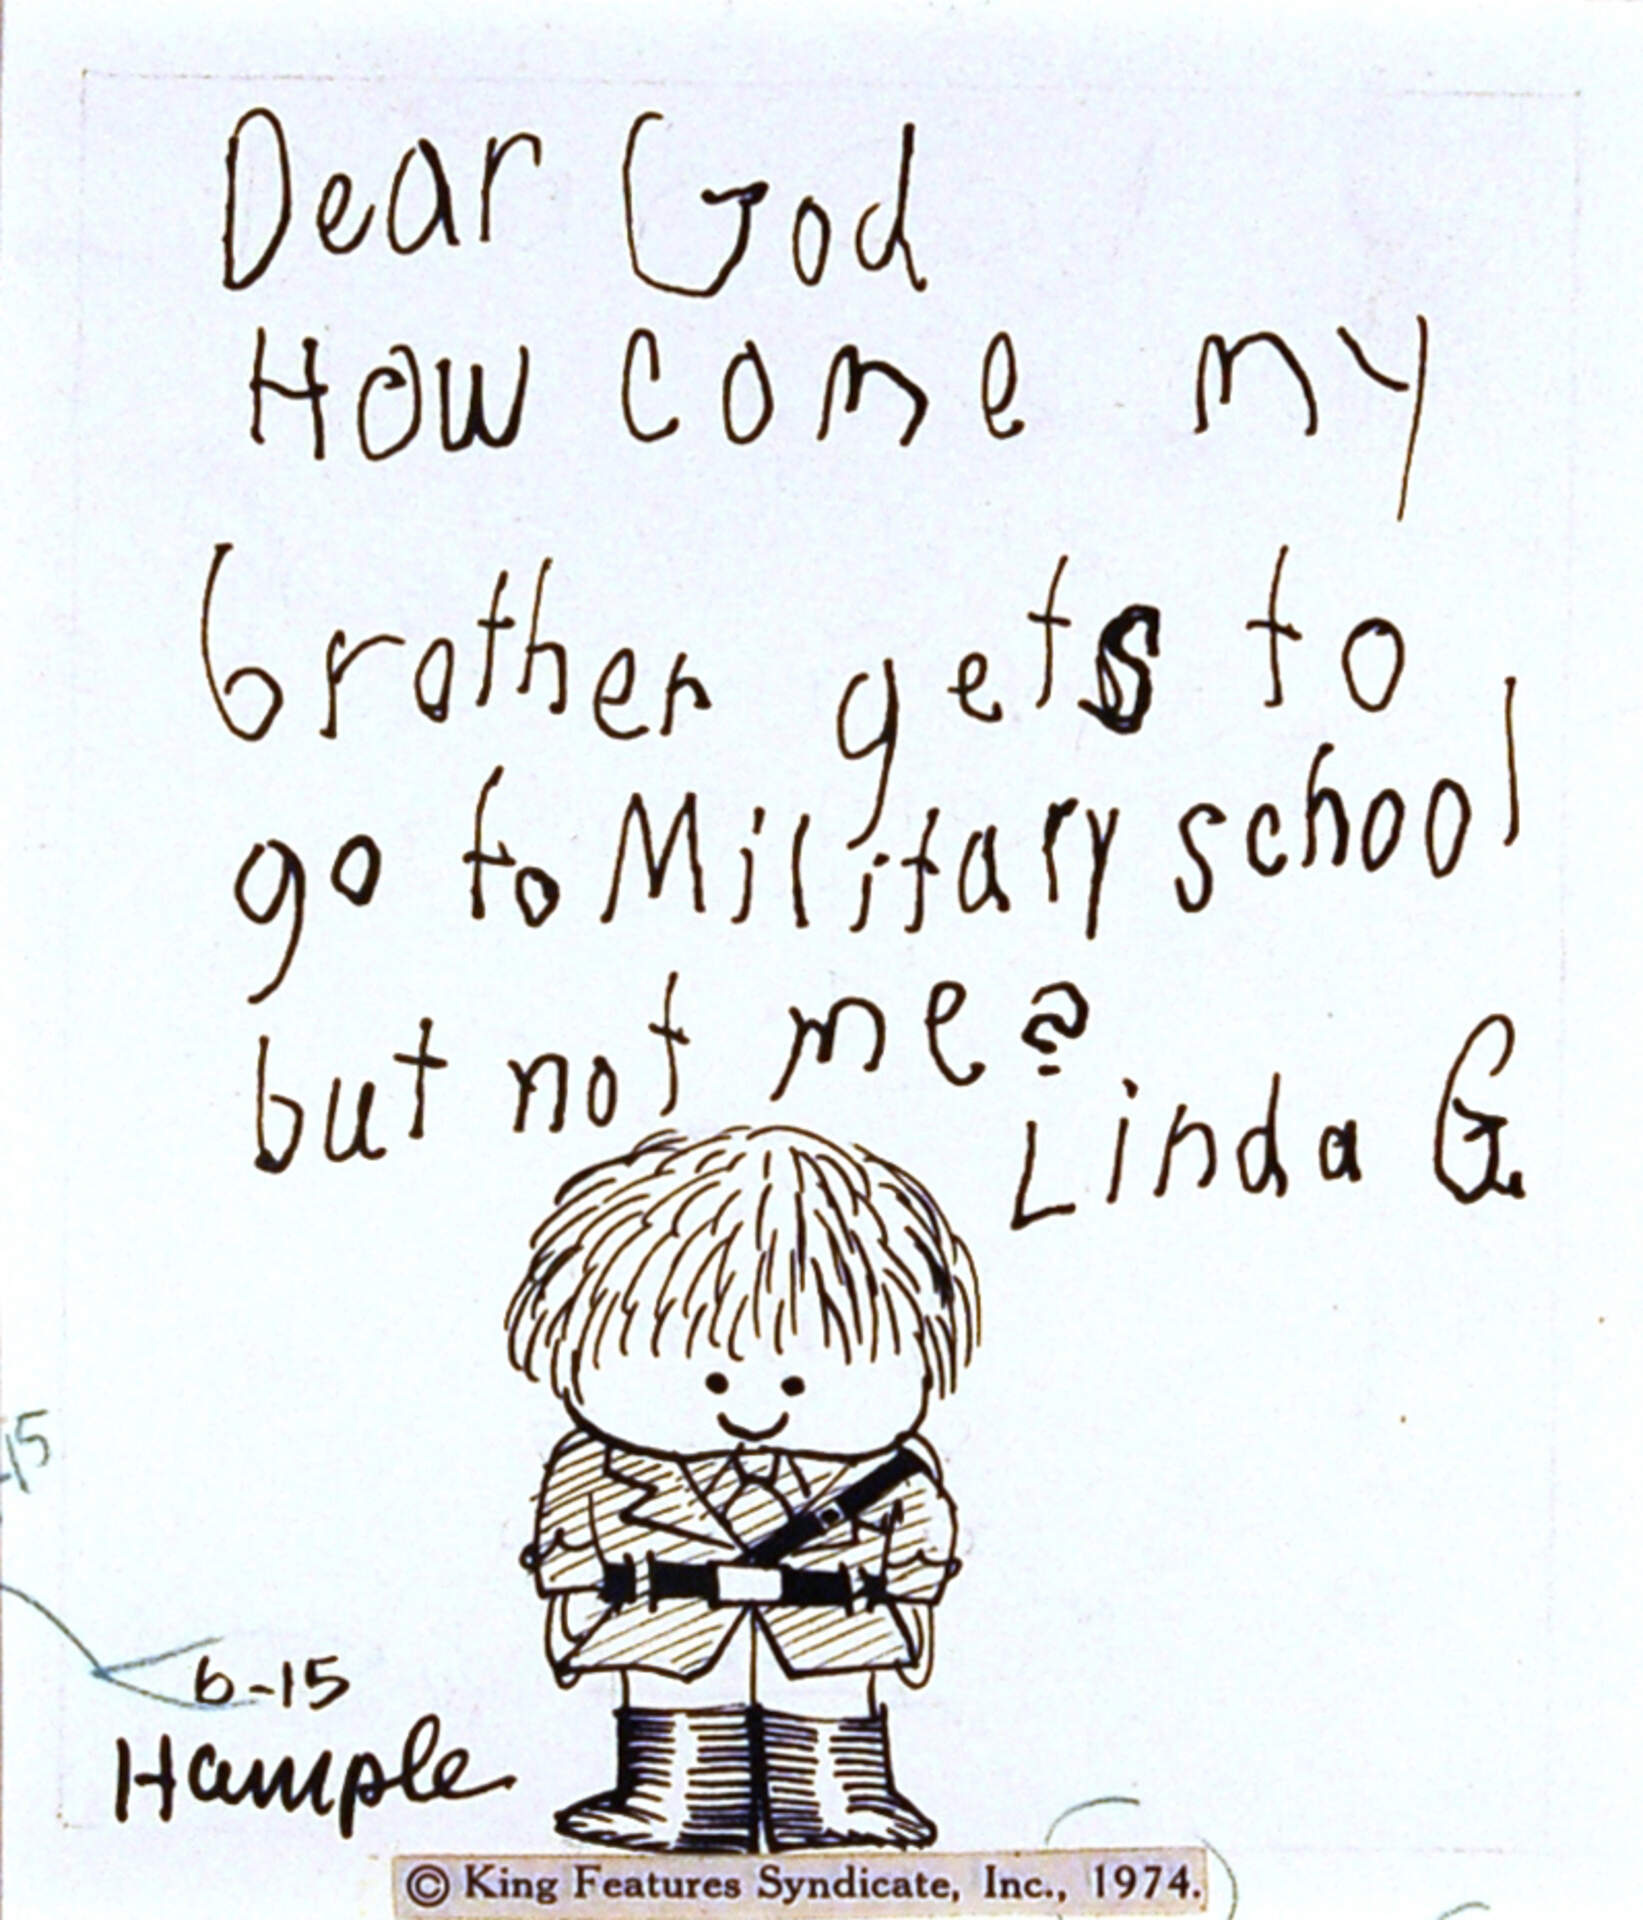 Dear God
How come my
brother gets to
go to Military school
but not me?
Linda G.
15
6-15
Hample
© King Features Syndicate, Inc., 1974.